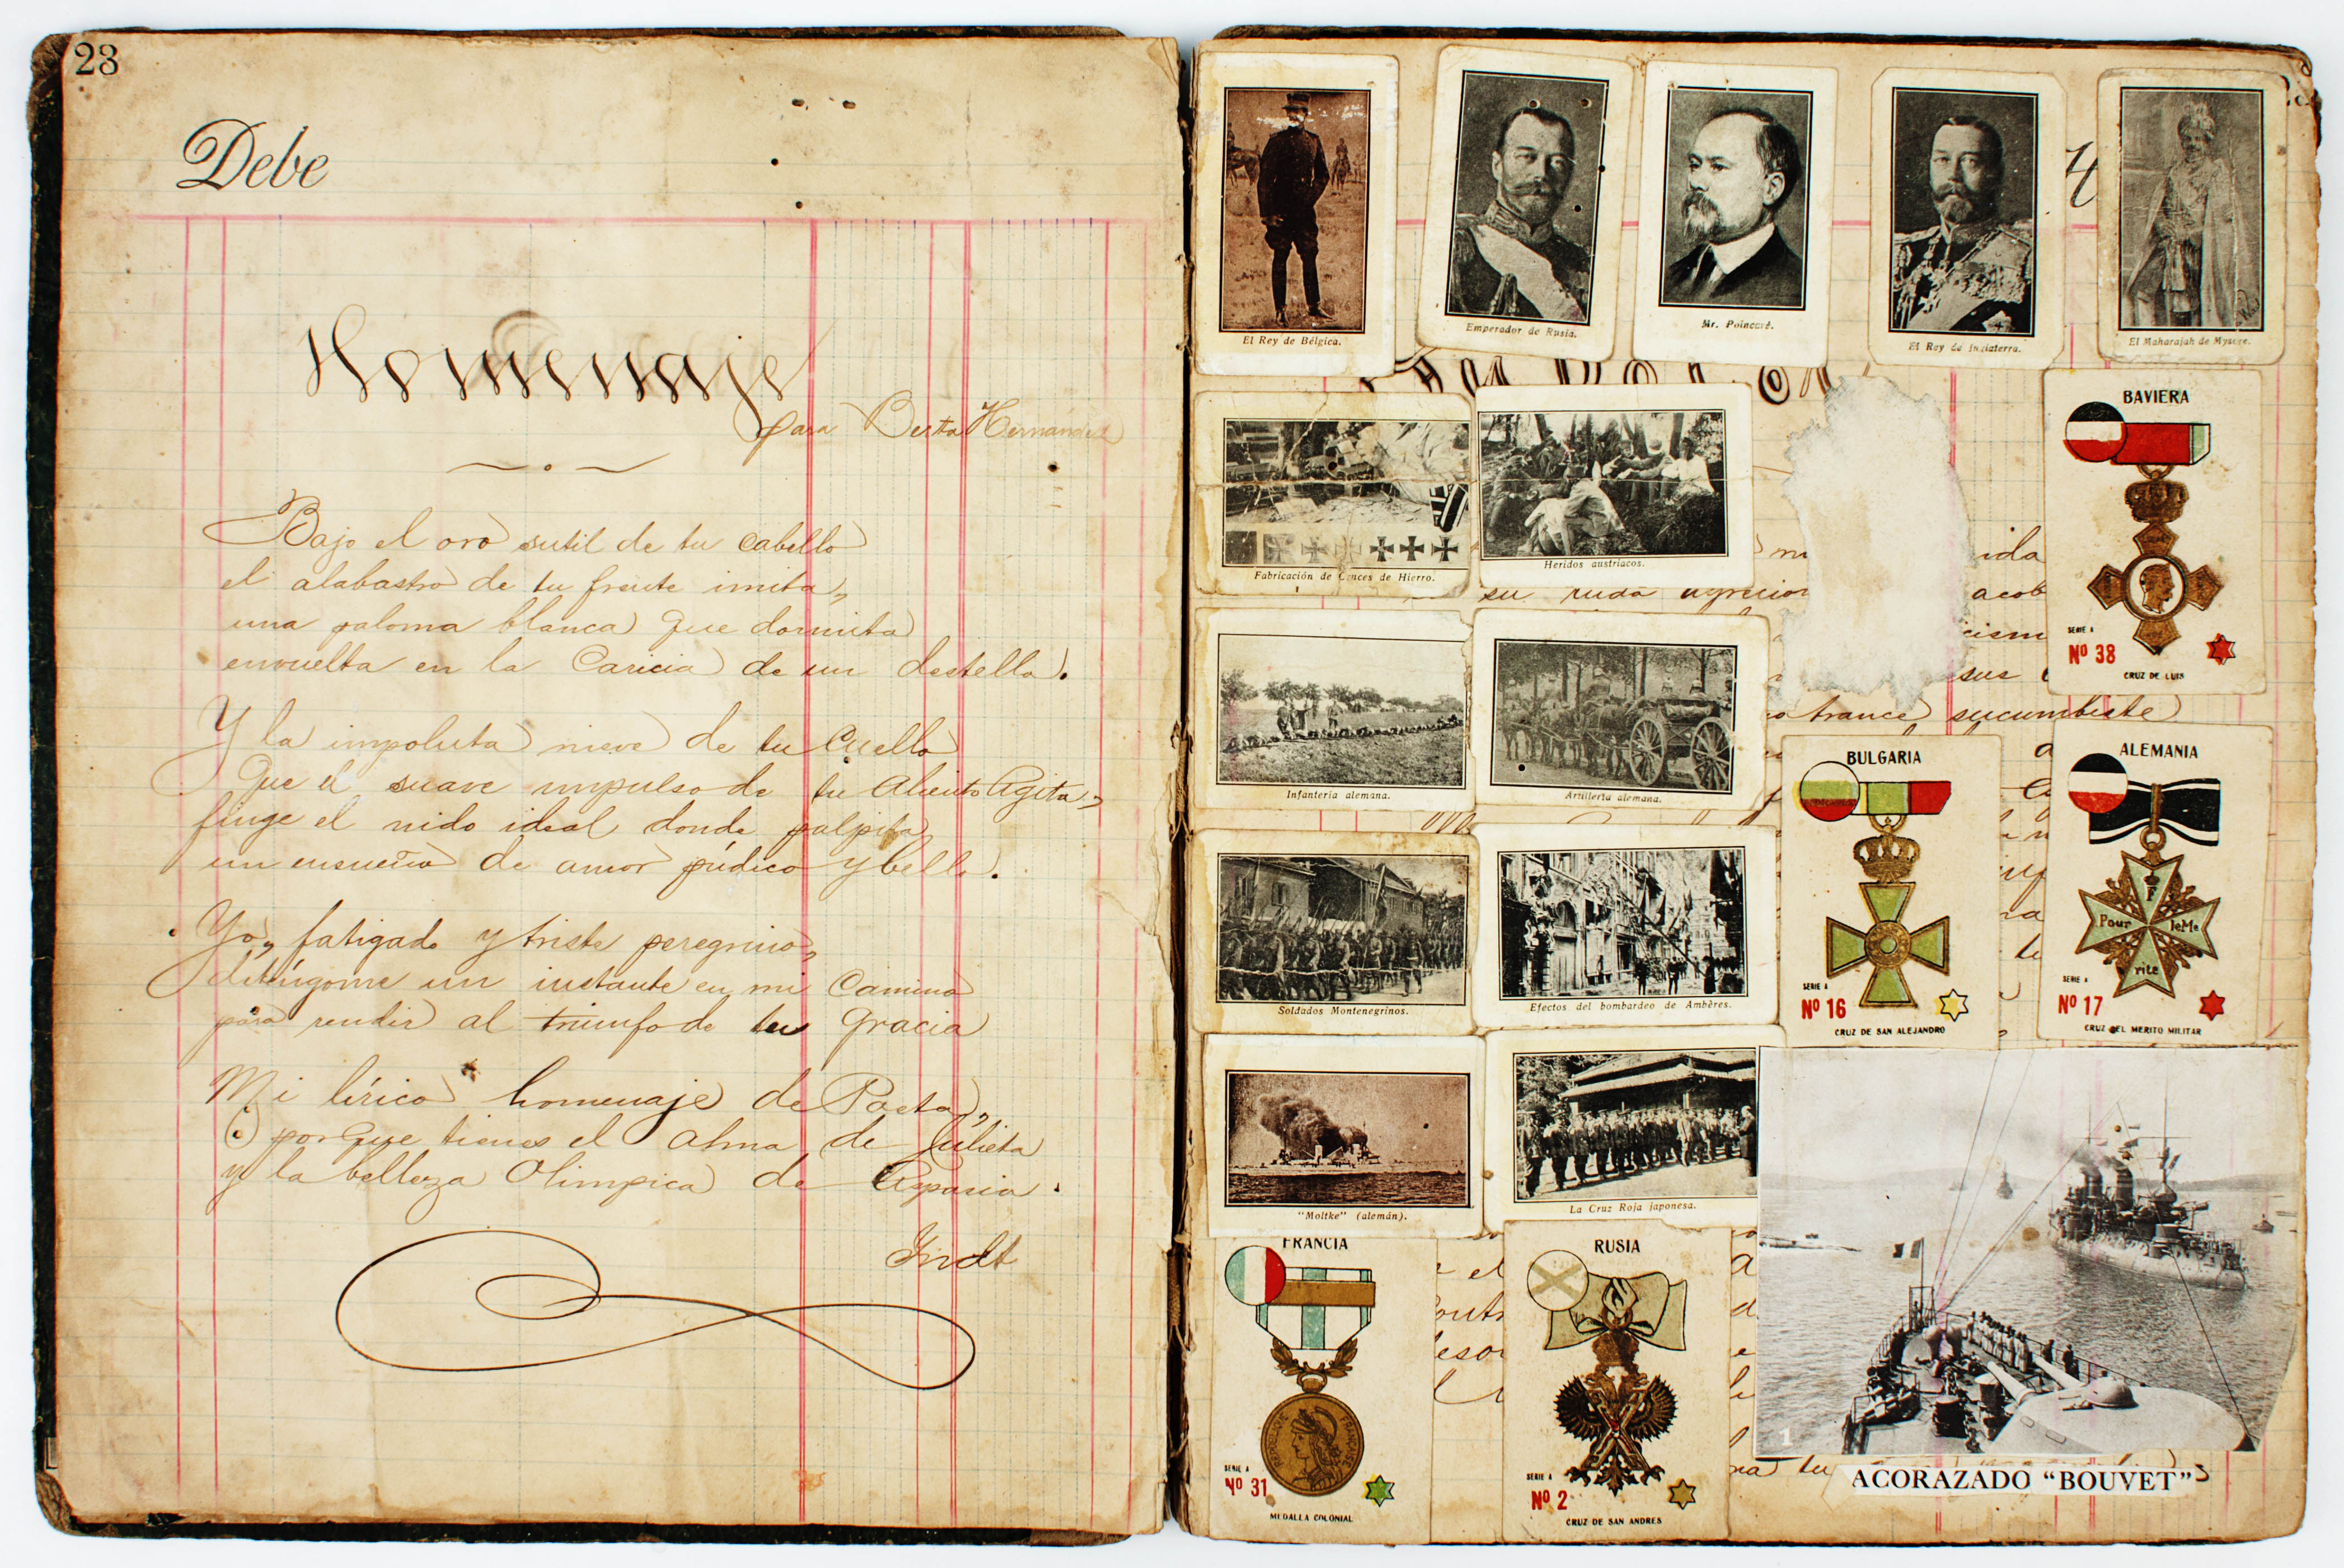 23
Debe
Homenaje
para Berta Hernández
Bajo el oro sutil de tu cabello
el alabastro de tu frente imita,
una paloma blanca que dormita
envuelta en la Caricia de un destello.
Y la impoluta nieve de tu Cuello
que el suave impulso de tu Aliento Agita,
finge el nido ideal donde palpita
un ensueño de amor púdico y bello.
Yo, fatigado y triste peregrino,
deténgome un instante en mi Camino
para rendir al triunfo de tu gracia
Mi lírico homenaje de Poeta,
¡porque tienes el alma de Julieta
y la belleza Olimpica de Aspasia.
El Rey de Bélgica.
Emperador de Rusia.
Mr. Poincaré.
El Rey de Inglaterra.
El Maharajah de Mysore.
Fabricación de Cruces de Hierro.
Heridos austriacos.
BAVIERA
SERIE A
Nº 38
CRUZ DE LUIS
su ruda agresion
sus
trance sucumbiste
Infantería alemana.
Artillería alemana.
BULGARIA
SERIE A
Nº 16
CRUZ DE SAN ALEJANDRO
ALEMANIA
F
Pour leMe
rite
SERIE A
Nº 17
CRUZ DEL MERITO MILITAR
Soldados Montenegrinos.
Efectos del bombardeo de Ambères.
"Moltke" (alemán).
La Cruz Roja japonesa.
FRANCIA
REPUBLIQUE FRANÇAISE
SERIE A
Nº 31
MEDALLA COLONIAL
el
RUSIA
SERIE A
Nº 2
CRUZ DE SAN ANDRES
1
tu
ACORAZADO “BOUVET”